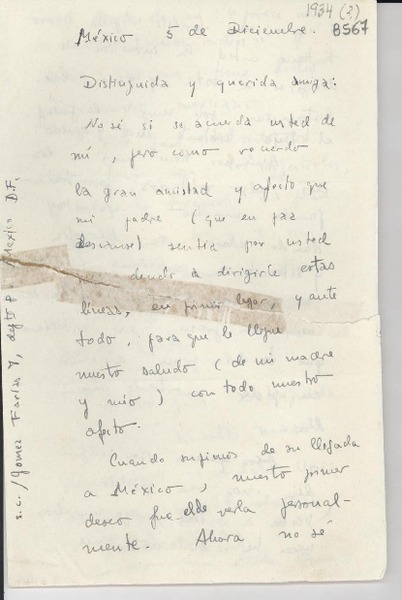 1934 (?)
8567
México 5 de Diciembre.
Distinguida y querida amiga:
No sé si se acuerda usted de
mí, pero como recuerdo
la gran amistad y afecto que
mi padre (que en paz
descanse) sentía por usted
dirigirle estas
líneas, en primer lugar, y ante
todo, para que le llegue
nuestro saludo (de mi madre
y mío) con todo nuestro
afecto.
Cuando supimos de su llegada
a México, nuestro primer
deseo fue el de verla personal-
mente. Ahora no sé
s.c./Gomez Farías 7, México D.F.